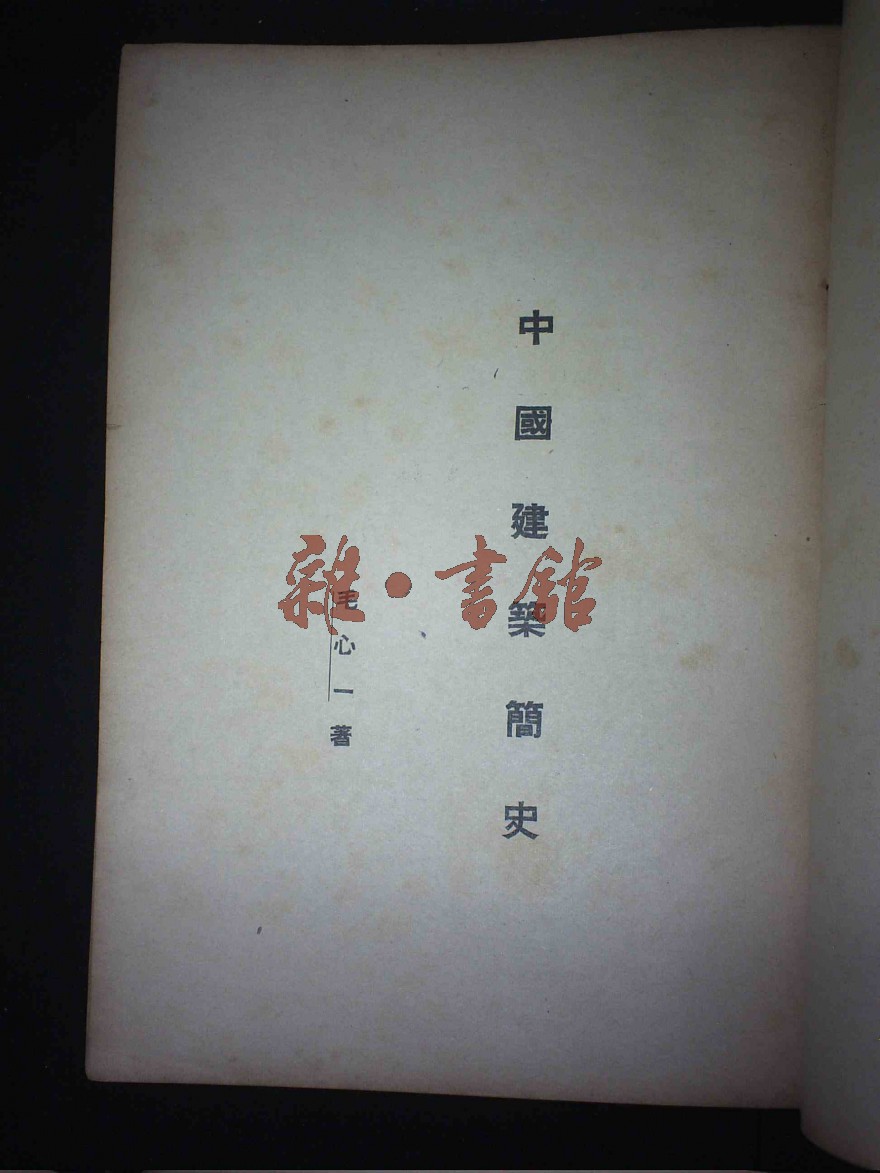 中國建築簡史
毛心一著
雜·書館